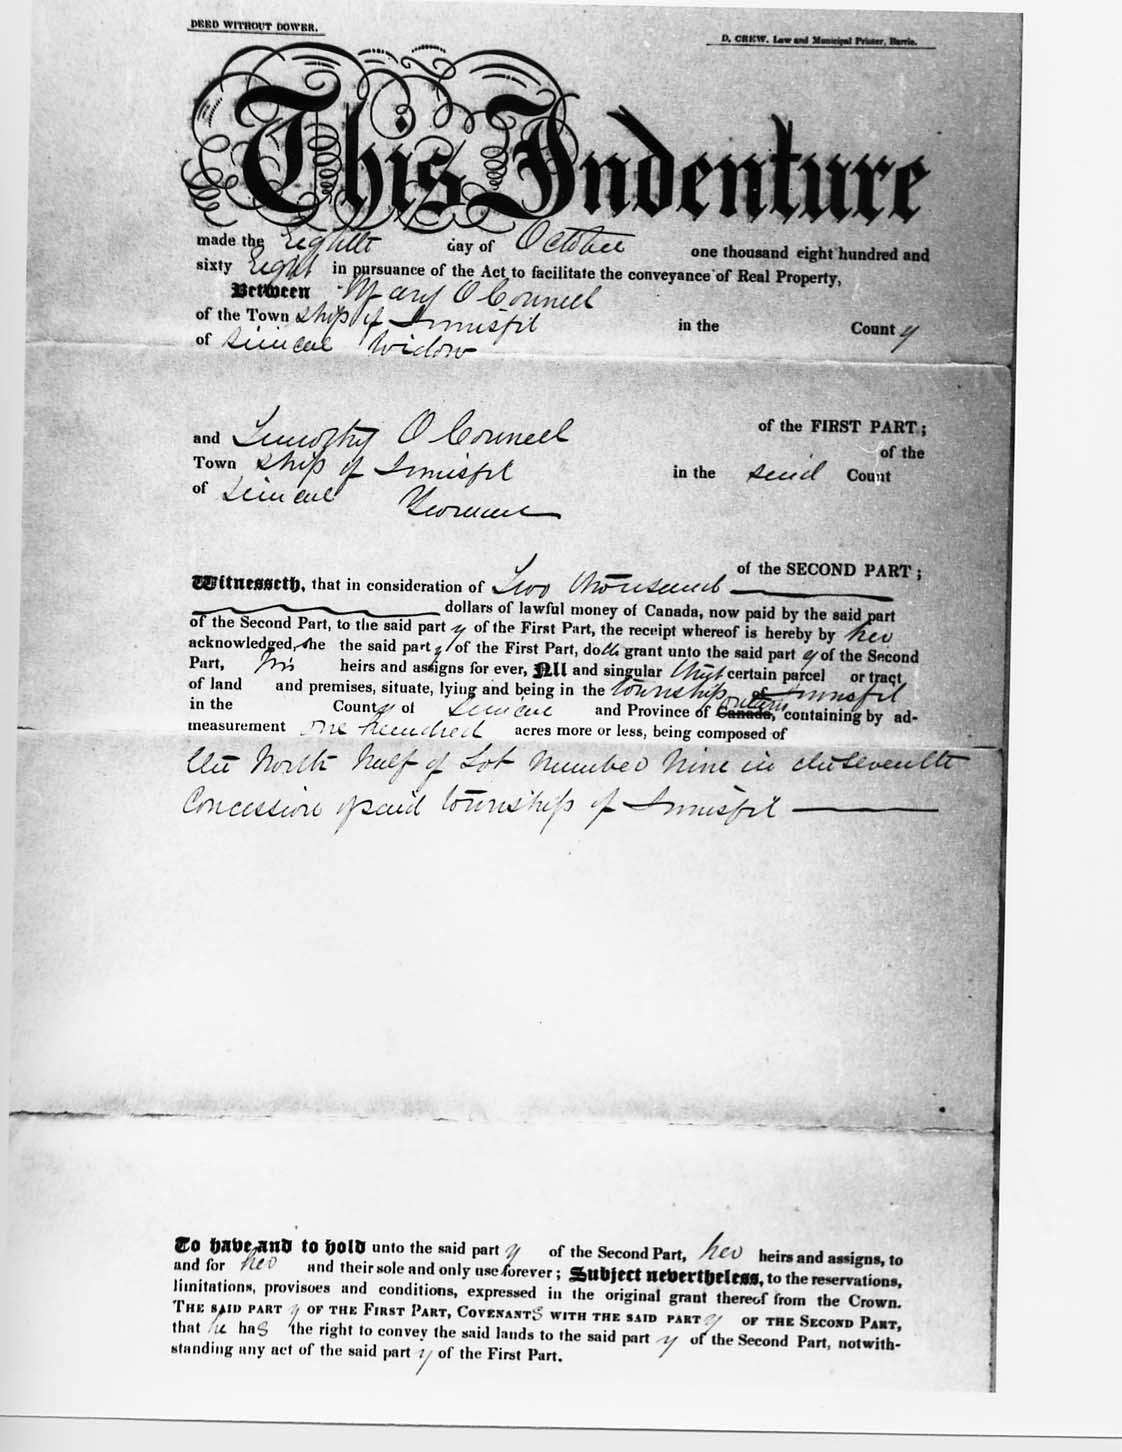 DEED WITHOUT DOWER.
D. CREW, Law and Municipal Printer, Barrie.
This Indenture
made the Eighth day of October one thousand eight hundred and
sixty Eight in pursuance of the Act to facilitate the conveyance of Real Property,
Between Mary O Connell
of the Town ship of Innisfil in the County
of Simcoe Widow
of the FIRST PART;
and Timothy O Connell of the
Town ship of Innisfil in the said Count
of Simcoe Yeoman
of the SECOND PART;
Witnesseth, that in consideration of Two thousand
dollars of lawful money of Canada, now paid by the said part
of the Second Part, to the said party of the First Part, the receipt whereof is hereby by her
acknowledged, she the said party of the First Part, doth grant unto the said party of the Second
Part, his heirs and assigns for ever, All and singular that certain parcel or tract
of land and premises, situate, lying and being in the township of Innisfil
in the County of Simcoe and Province of Canada, Ontario containing by ad-
measurement one hundred acres more or less, being composed of
the North half of Lot Number Nine in the Seventh
Concession of said township of Innisfil
To have and to hold unto the said party of the Second Part, her heirs and assigns, to
and for her and their sole and only use forever; Subject nevertheless, to the reservations,
limitations, provisoes and conditions, expressed in the original grant thereof from the Crown.
THE SAID PARTY OF THE FIRST PART, COVENANTS WITH THE SAID PARTY OF THE SECOND PART,
that he has the right to convey the said lands to the said party of the Second Part, notwith-
standing any act of the said party of the First Part.